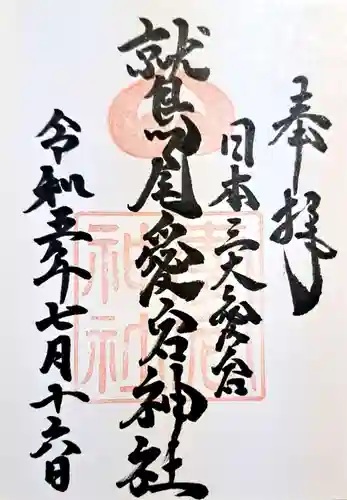 奉拝
日本三大愛宕
鷲尾愛宕神社
令和五年七月十六日